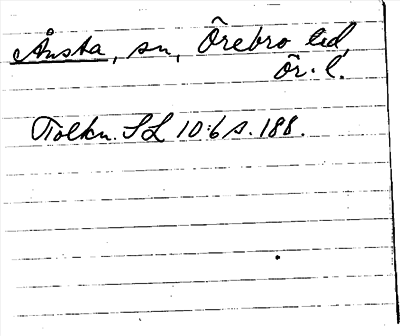 Ånsta, sn, Örebro hd,
Ör. l.
Tolkn. SL 10:6 s. 188.